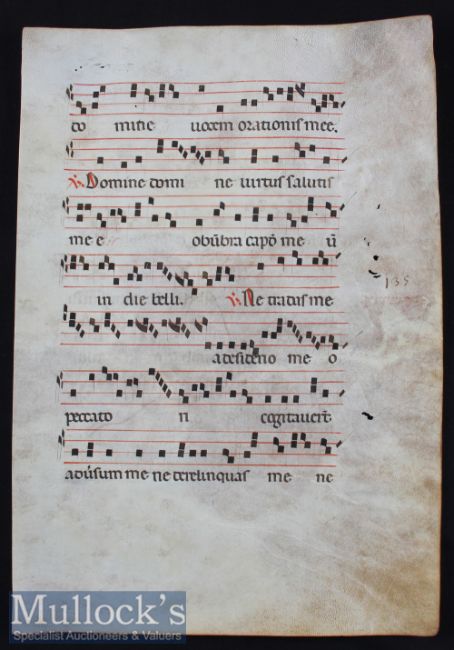 do mine uocem orationis mee.
V. Domine domi ne uirtus salutis
me e obūbra capđ me ū
in die belli. V. Ne tradas me
a desiderio me o
peccato ri cogitauert̄
aduˢsum me ne derelinquas me ne
135
Mullock's
Specialist Auctioneers & Valuers